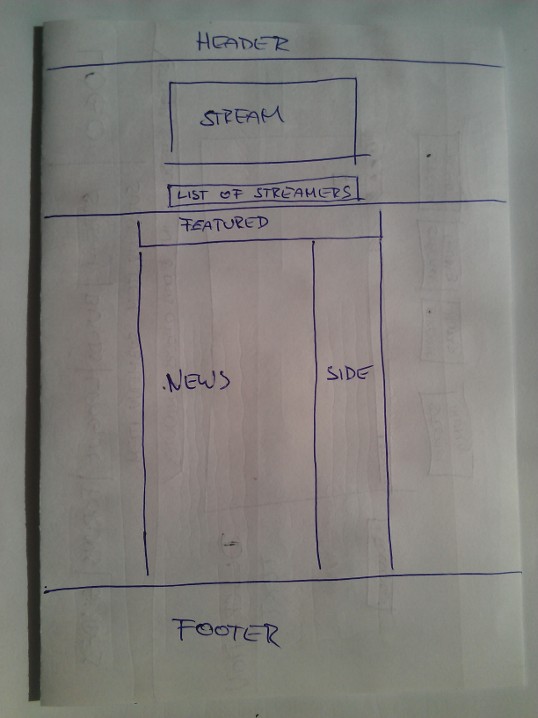 HEADER
STREAM
LIST OF STREAMERS
FEATURED
NEWS
SIDE
FOOTER